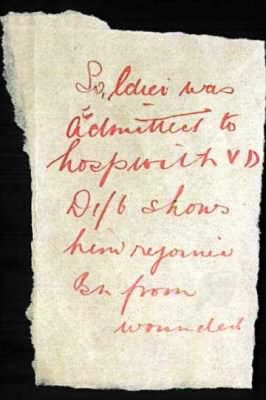 Soldier was
admitted to
hosp with VD
D1/6 shows
him rejoined
Bn from
wounded